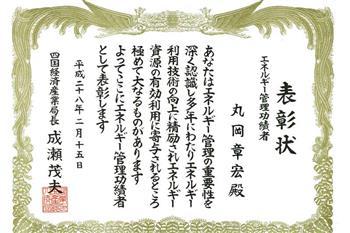 表彰状
エネルギー管理功績者
丸岡章宏殿
あなたはエネルギー管理の重要性を
深く認識し多年にわたりエネルギー
利用技術の向上に精励されエネルギー
資源の有効利用に寄与されるところ
極めて大なるものがあります
よってここにエネルギー管理功績者
として表彰します
平成二十八年二月十五日
四国経済産業局長 成瀬茂夫